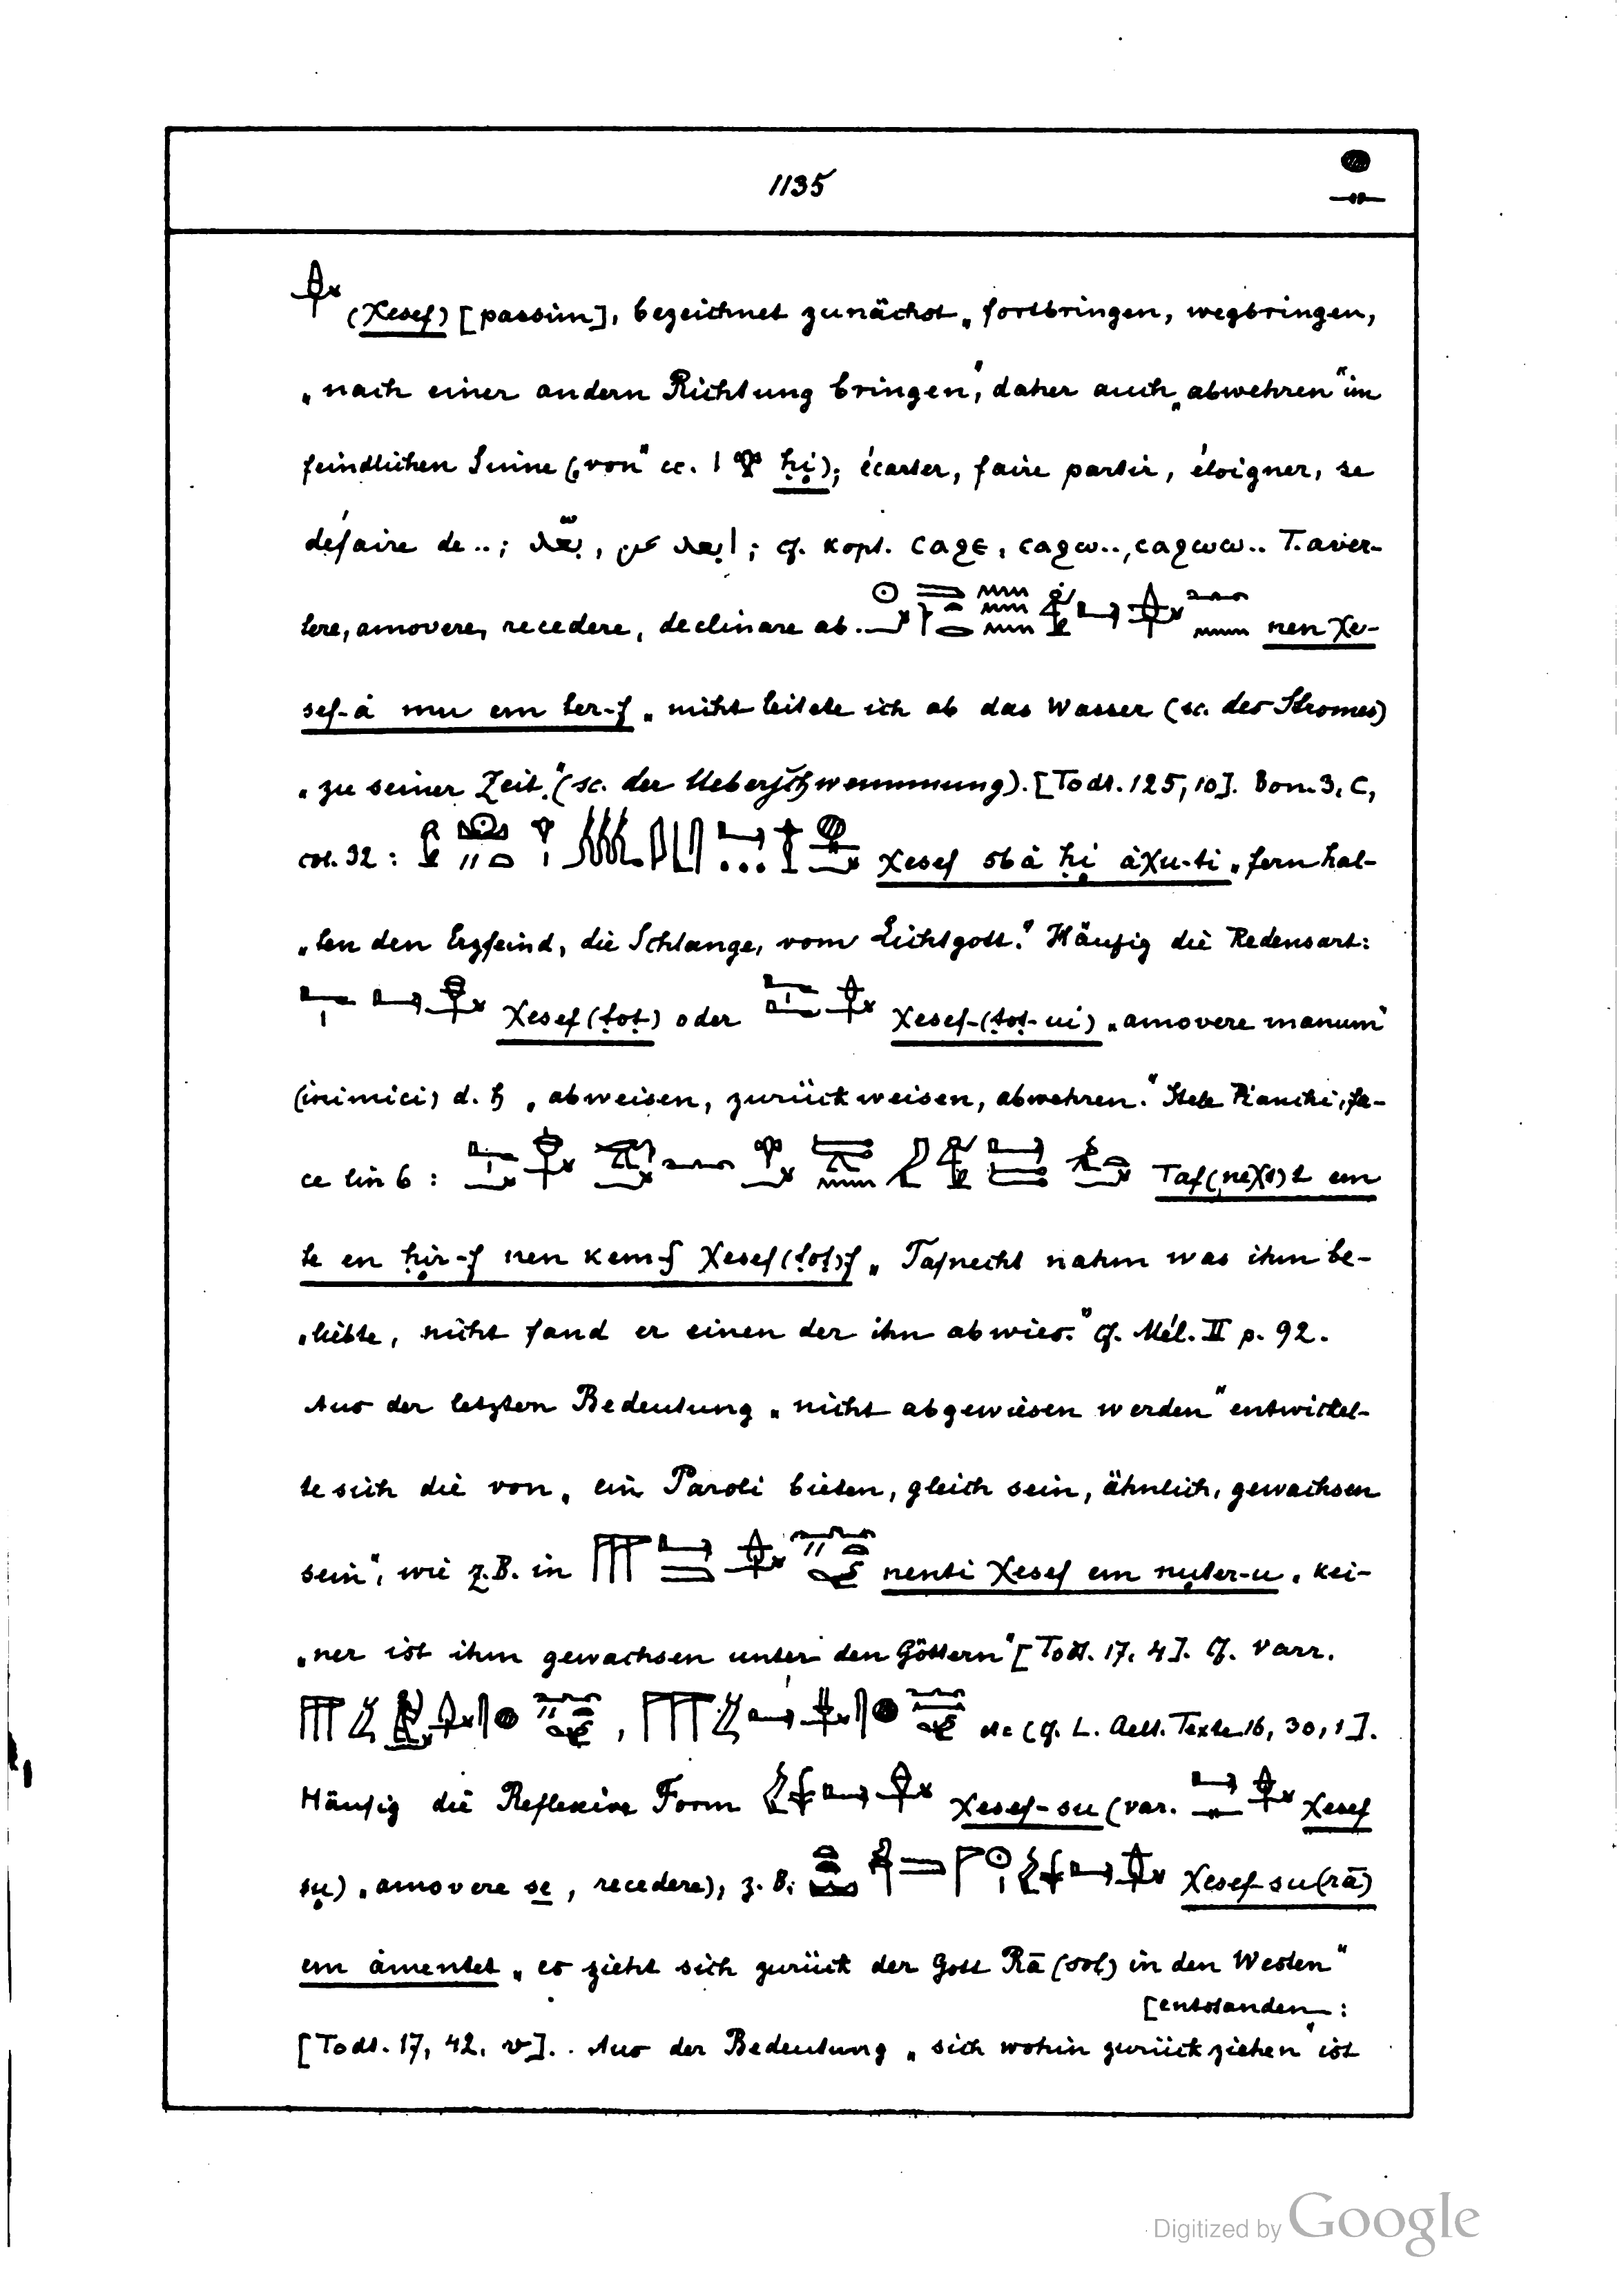 1135
(χesef) [passim], bezeichnet zunächst „fortbringen, wegbringen,
„nach einer andern Richtung bringen“, daher auch „abwehren“ im
feindlichen Sinne („von“ cc. ḥi); écarter, faire partir, éloigner, se
défaire de..; بعّد, ابعد عن; cf. kopt. ⲥⲁϩⲉ, ⲥⲁϩⲱ.., ⲥⲁϩⲱⲱ.. T. aver-
tere, amovere, recedere, declinare ab. nen χe-
sef-à mu em ter-f „nicht leitete ich ab das Wasser (sc. des Stromes)
„zu seiner Zeit“ (sc. der Ueberschwemmung). [Todt. 125, 10]. Bon. 3, C,
col. 32: χesef sbà ḥi àχu-ti „fern hal-
„ten den Erzfeind, die Schlange, vom Lichtgott.“ Häufig die Redensart:
χesef (ṭoṭ) oder χesef-(ṭoṭ-ui) „amovere manum“
(inimici) d. h „abweisen, zurückweisen, abwehren.“ Stele Pianchi, fa-
ce lin 6: Taf(neχt)t em
te en ḥir-f nen kem-f χesef (ṭoṭ)f „Tafnecht nahm was ihm be-
„liebte, nicht fand er einen der ihn abwies.“ cf. Mél. II p. 92.
Aus der letzten Bedeutung „nicht abgewiesen werden“ entwickel-
te sich die von „ein Paroli bieten, gleich sein, ähnlich, gewachsen
sein“, wie z.B. in nenti χesef em nuter-u „kei-
„ner ist ihm gewachsen unter den Göttern“ [Todt. 17, 4]. Cf. varr.
, etc (cf. L. Aelt. Texte 16, 30, 1].
Häufig die Reflexive Form χesef-su (var. χesef
su) „amovere se, recedere), z. B. χesef-su (rā)
em àmentet „es zieht sich zurück der Gott Rā (sol) in den Westen“
[entstanden:
[Todt. 17, 42. v]. . Aus der Bedeutung „sich wohin zurückziehen“ ist
Digitized by Google